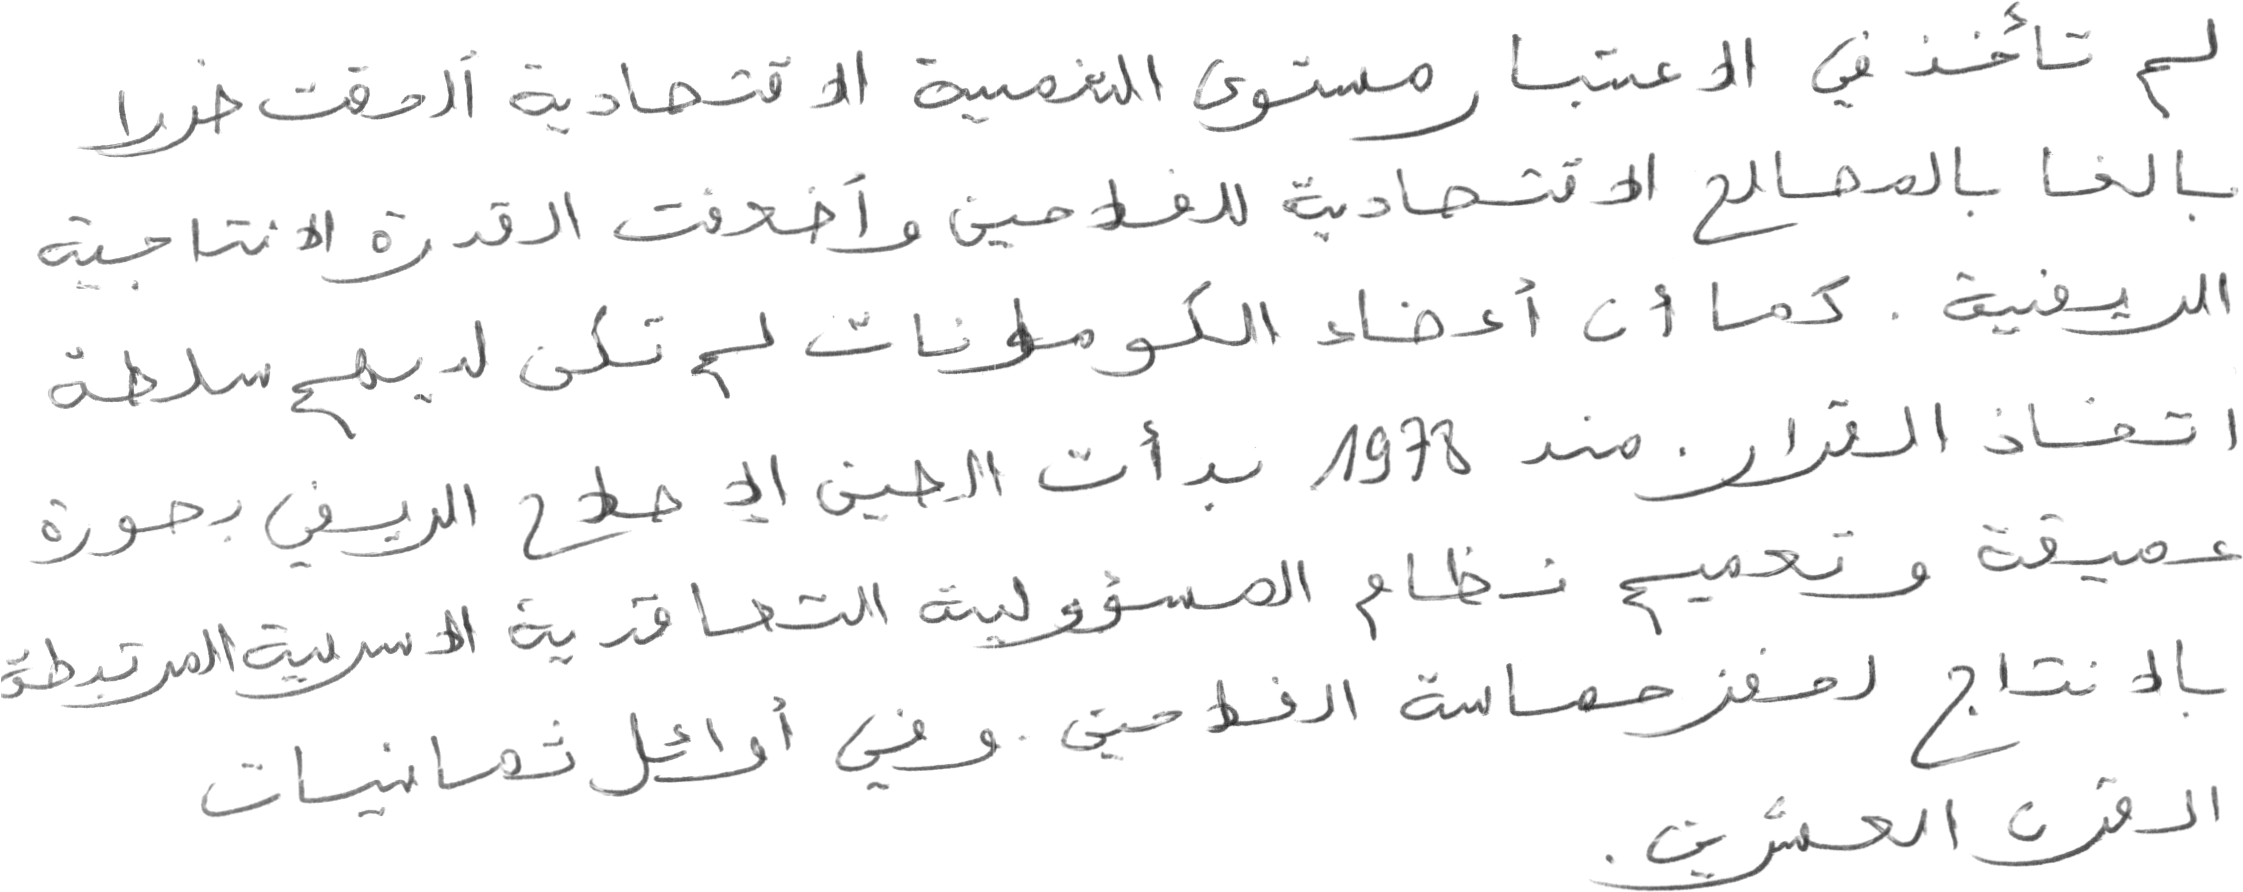 لم تأخذ في الاعتبار مستوى التنمية الاقتصادية ألحقت ضررا
بالغا بالمصالح الاقتصادية للفلاحين وأضعفت القدرة الانتاجية
الريفية . كما أن أعضاء الكوملونات لم تكن لديهم سلطة
اتخاذ القرار . منذ 1978 بدأت الصين الإصلاح الريفي بصورة
عميقة وتعميم نظام المسؤولية التعاقدية الاسرية المرتبطة
بالانتاج لحفز حماسة الفلاحين . وفي أوائل ثمانيات
القرن العشرين .